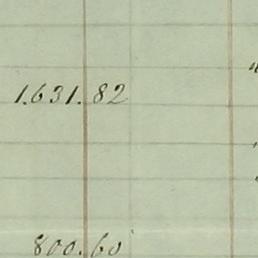 1.631.82 "
"
"
800.60